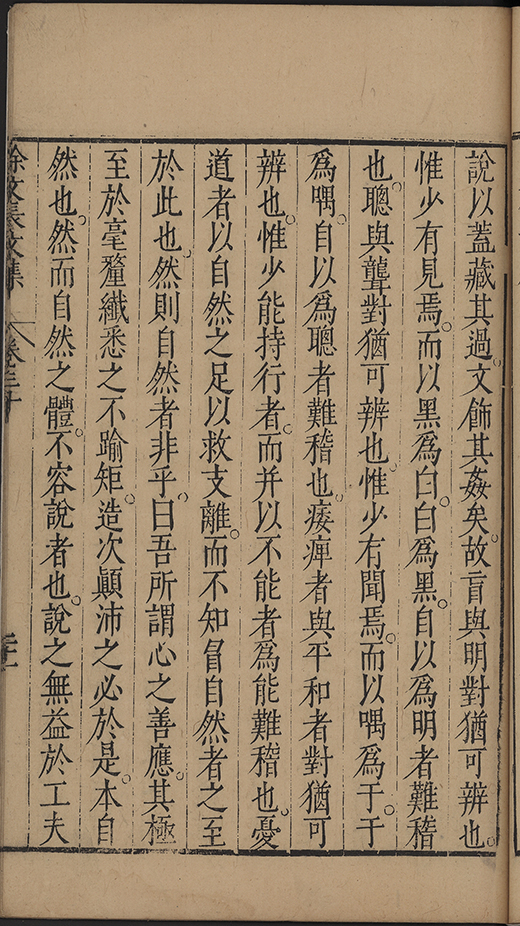 說以蓋藏其過。文飾其姦矣。故盲與明對猶可辨也。
惟少有見焉。而以黑爲白。白爲黑。自以爲明者難稽
也。聰與聾對猶可辨也。惟少有聞焉。而以喁爲于。于
爲喁。自以爲聰者難稽也。痿痺者與平和者對猶可
辨也。惟少能持行者。而并以不能者爲能難稽也。憂
道者以自然之足以救支離。而不知冒自然者之至
於此也。然則自然者非乎。曰吾所謂心之善應。其極
至於毫釐纖悉之不踰矩。造次顛沛之必於是。本自
然也。然而自然之體。不容說者也。說之無益於工夫
徐文長文集 卷三十